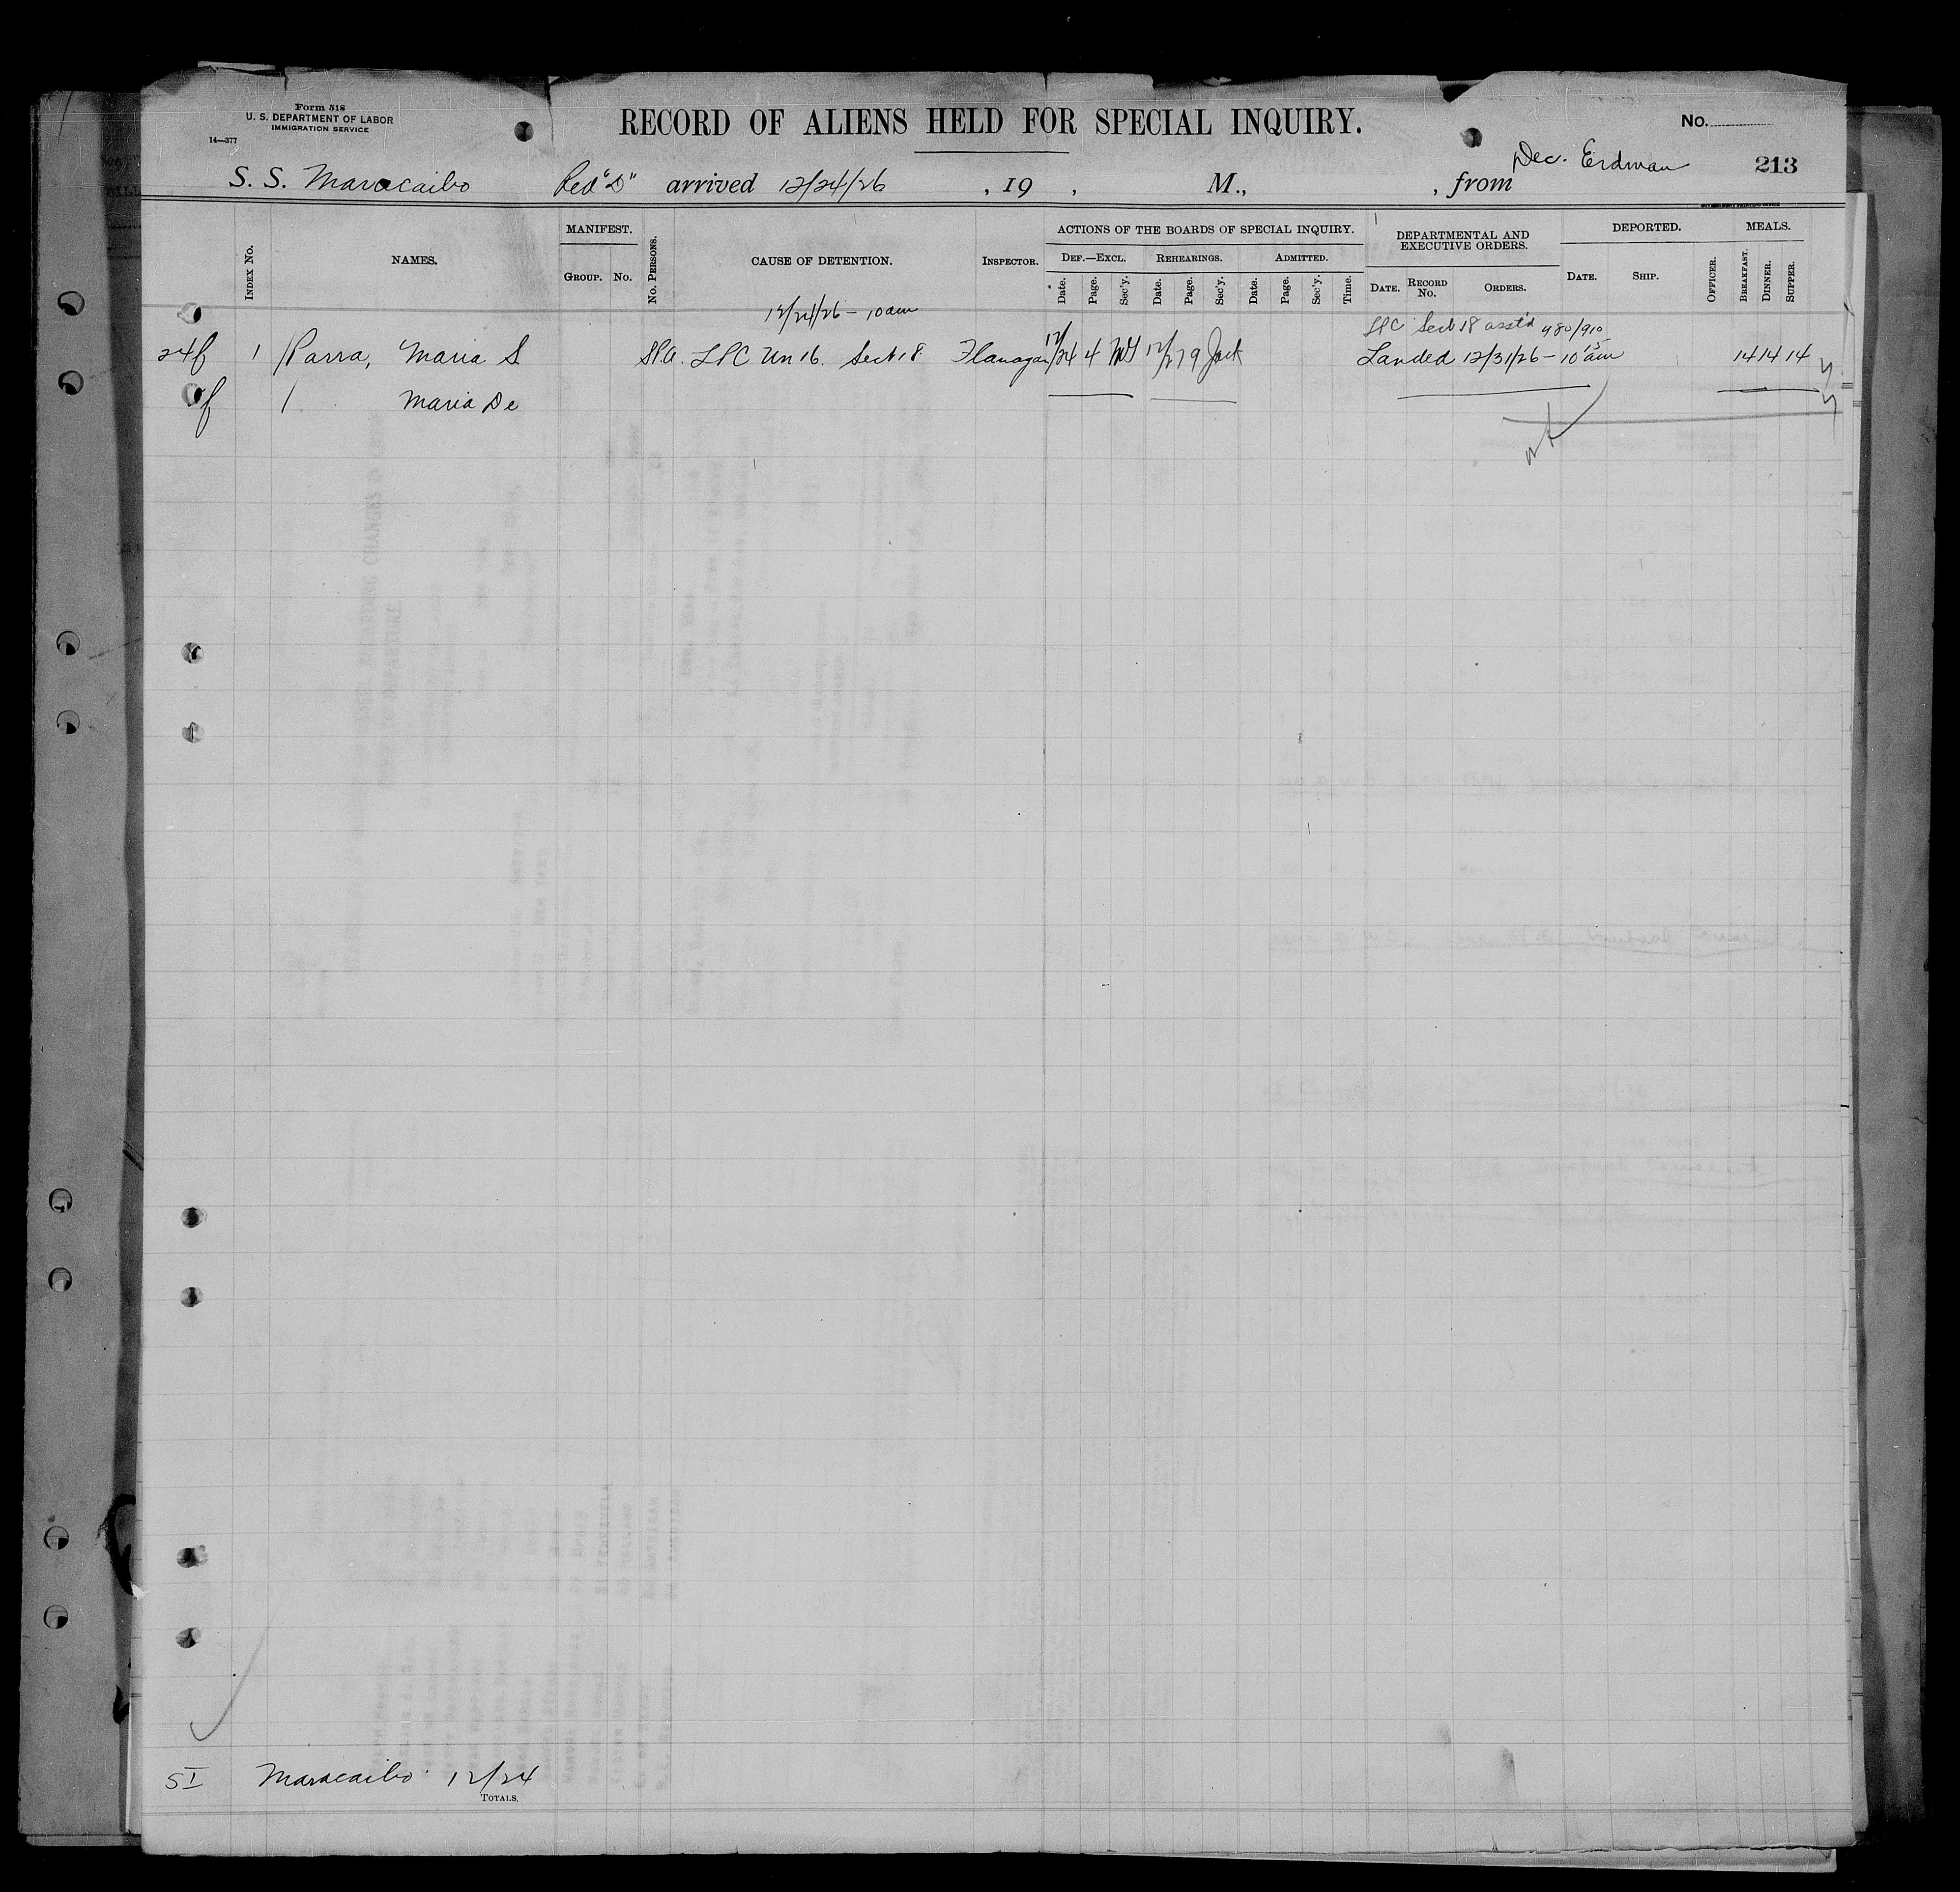 Form 518
U. S. DEPARTMENT OF LABOR
IMMIGRATION SERVICE
14—377
RECORD OF ALIENS HELD FOR SPECIAL INQUIRY.
No.
213
Dec. Erdman
S. S. Maracaibo Red "D" arrived 12/24/26 , 19 , M., , from
INDEX No.
NAMES.
MANIFEST.
GROUP. No.
No. PERSONS.
CAUSE OF DETENTION.
INSPECTOR.
ACTIONS OF THE BOARDS OF SPECIAL INQUIRY.
DEF.—EXCL. REHEARINGS. ADMITTED.
Date. Page. Sec'y. Date. Page. Sec'y. Date. Page. Sec'y. Time.
DEPARTMENTAL AND
EXECUTIVE ORDERS.
DATE. RECORD No. ORDERS.
DEPORTED.
DATE. SHIP. OFFICER.
MEALS.
BREAKFAST. DINNER. SUPPER.
12/24/26 – 10am
LPC Sect 18 asst'd 980/910
24f 1 Parra, Maria S LPC Un 16. Sect 18 Flanagan 12/24 4 12/27 9 Landed 12/31/26 – 10 15 am 14 14 14
f Maria De
SI Maracaibo 12/24
TOTALS.